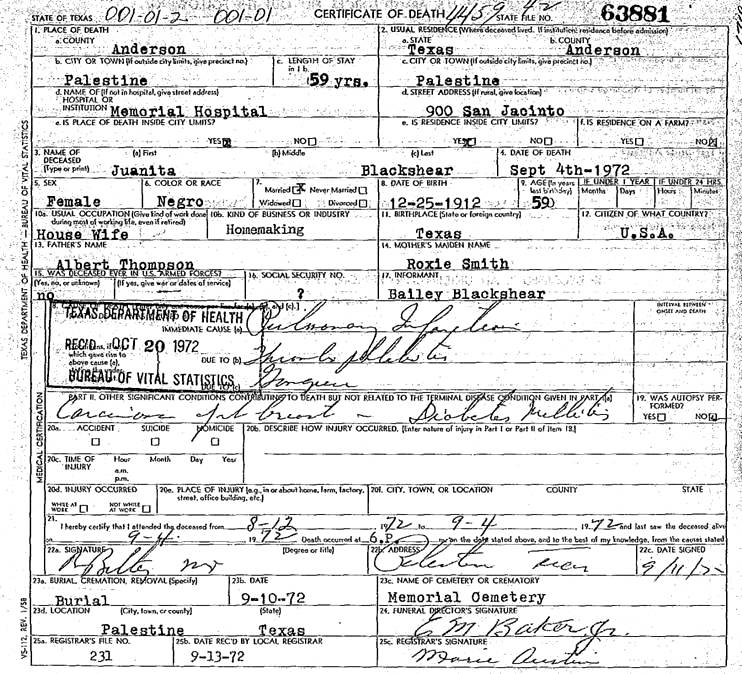 STATE OF TEXAS 001-01-2 001-01 CERTIFICATE OF DEATH 4459 STATE FILE NO. 63881
1. PLACE OF DEATH 2. USUAL RESIDENCE (Where deceased lived. If institution: residence before admission)
a. COUNTY Anderson a. STATE Texas b. COUNTY Anderson
b. CITY OR TOWN (If outside city limits, give precinct no.) Palestine c. LENGTH OF STAY in 1 b. 59 yrs. c. CITY OR TOWN (If outside city limits, give precinct no.) Palestine
d. NAME OF (If not in hospital, give street address) HOSPITAL OR INSTITUTION Memorial Hospital d. STREET ADDRESS (If rural, give location) 900 San Jacinto
e. IS PLACE OF DEATH INSIDE CITY LIMITS? YES NO e. IS RESIDENCE INSIDE CITY LIMITS? YES NO f. IS RESIDENCE ON A FARM? YES NO
3. NAME OF DECEASED (Type or print) (a) First Juanita (b) Middle (c) Last Blackshear 4. DATE OF DEATH Sept 4th-1972
5. SEX Female 6. COLOR OR RACE Negro 7. Married Never Married Widowed Divorced 8. DATE OF BIRTH 12-25-1912 9. AGE (In years last birthday) 59 IF UNDER 1 YEAR Months Days IF UNDER 24 HRS. Hours Minutes
10a. USUAL OCCUPATION (Give kind of work done during most of working life, even if retired) House Wife 10b. KIND OF BUSINESS OR INDUSTRY Homemaking 11. BIRTHPLACE (State or foreign country) Texas 12. CITIZEN OF WHAT COUNTRY? U.S.A.
13. FATHER'S NAME Albert Thompson 14. MOTHER'S MAIDEN NAME Roxie Smith
15. WAS DECEASED EVER IN U.S. ARMED FORCES? (Yes, no, or unknown) (If yes, give war or dates of service) no 16. SOCIAL SECURITY NO. ? 17. INFORMANT Bailey Blackshear
INTERVAL BETWEEN ONSET AND DEATH
TEXAS DEPARTMENT OF HEALTH
IMMEDIATE CAUSE (a) Pulmonary Infarction
REC'D OCT 20 1972
which gave rise to above cause (a), DUE TO (b) Thrombophlebitis
BUREAU OF VITAL STATISTICS DUE TO (c)
PART II. OTHER SIGNIFICANT CONDITIONS CONTRIBUTING TO DEATH BUT NOT RELATED TO THE TERMINAL DISEASE CONDITION GIVEN IN PART I(a) 19. WAS AUTOPSY PERFORMED? YES NO
Carcinoma breast Diabetes Mellitis
20a. ACCIDENT SUICIDE HOMICIDE 20b. DESCRIBE HOW INJURY OCCURRED. (Enter nature of injury in Part I or Part II of item 18.)
20c. TIME OF INJURY Hour a.m. p.m. Month Day Year
20d. INJURY OCCURRED WHILE AT WORK NOT WHILE AT WORK 20e. PLACE OF INJURY (e.g., in or about home, farm, factory, street, office building, etc.) 20f. CITY, TOWN, OR LOCATION COUNTY STATE
21. I hereby certify that I attended the deceased from 8-12 1972 to 9-4 1972 and last saw the deceased alive
on 9-4 1972 Death occurred at 6 P. m on the date stated above, and to the best of my knowledge, from the causes stated
22a. SIGNATURE (Degree or title) 22b. ADDRESS Palestine Texas 22c. DATE SIGNED 9/11/72
23a. BURIAL, CREMATION, REMOVAL (Specify) Burial 23b. DATE 9-10-72 23c. NAME OF CEMETERY OR CREMATORY Memorial Cemetery
23d. LOCATION (City, town, or county) Palestine (State) Texas 24. FUNERAL DIRECTOR'S SIGNATURE E.M. Baker Jr.
25a. REGISTRAR'S FILE NO. 231 25b. DATE REC'D BY LOCAL REGISTRAR 9-13-72 25c. REGISTRAR'S SIGNATURE Marie Austin
TEXAS DEPARTMENT OF HEALTH — BUREAU OF VITAL STATISTICS
MEDICAL CERTIFICATION
VS-112, REV. 1/58